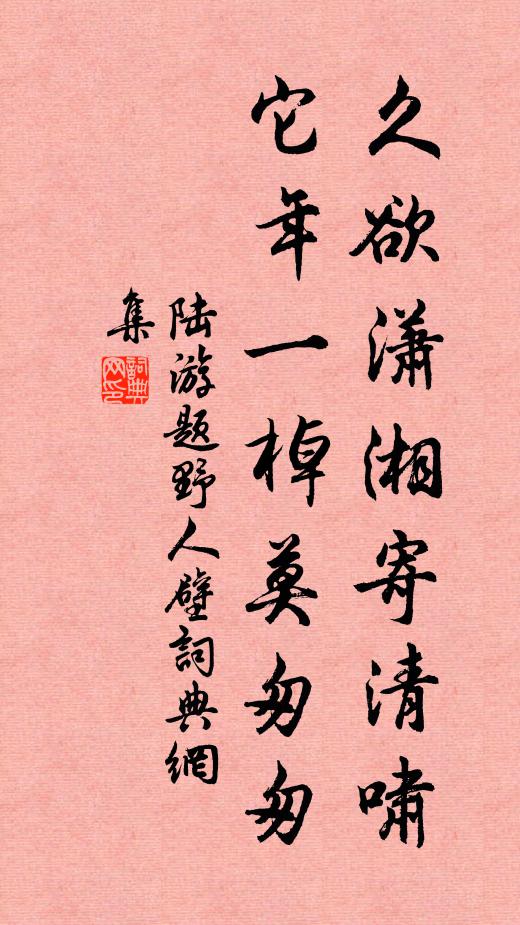 久欲瀟湘寄清嘯
它年一棹莫匆匆
陆游题野人壁詞典網
集
詞典网印